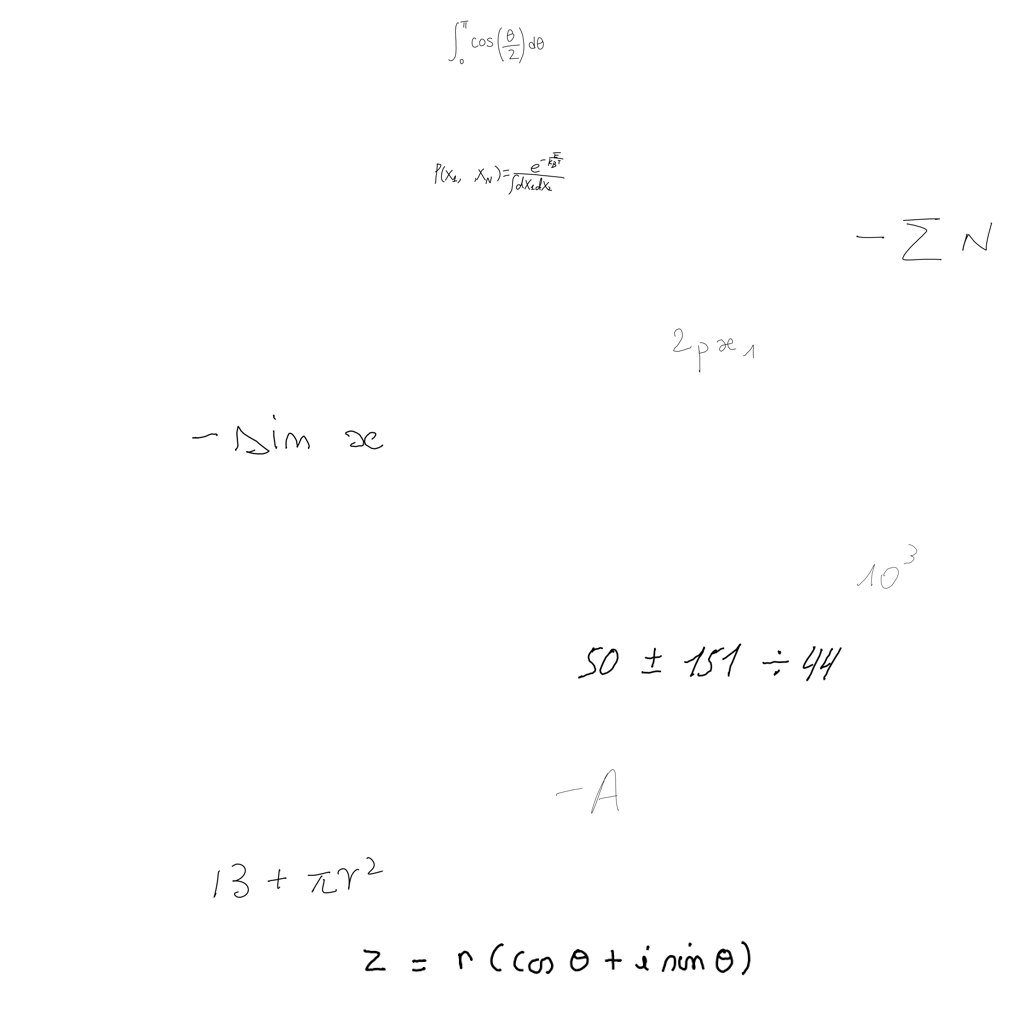 ∫₀^π cos(θ/2) dθ
P(x₁, x_N) = e^(-E/(k_B T)) / ∫dx₁dx₂
- Σ N
2px₁
- sin x
10³
50 ± 151 ÷ 44
- A
13 + πr²
z = r (cos θ + i sin θ)